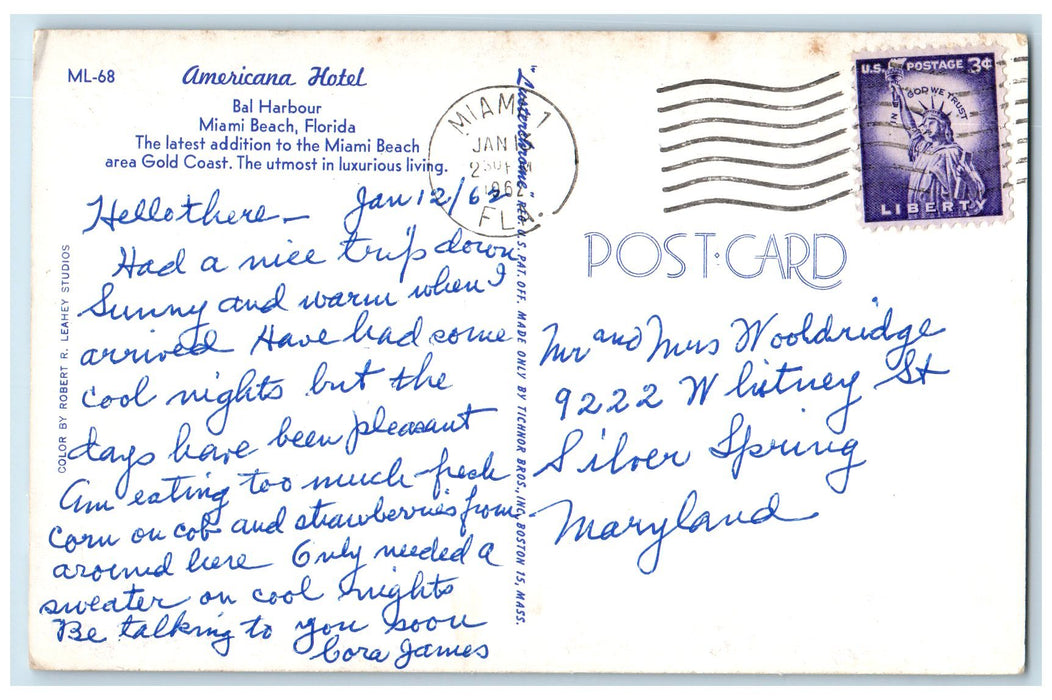 ML-68
Americana Hotel
Bal Harbour
Miami Beach, Florida
The latest addition to the Miami Beach
area Gold Coast. The utmost in luxurious living.
Hello there — Jan 12/62
Had a nice trip down
Sunny and warm when I
arrived Have had some
cool nights but the
days have been pleasant
Am eating too much fresh
corn on cob and strawberries from
around here Only needed a
sweater on cool nights
Be talking to you soon
Cora James
COLOR BY ROBERT R. LEAHEY STUDIOS
"Lusterchrome" REG. U.S. PAT. OFF. MADE ONLY BY TICHNOR BROS., INC., BOSTON 15, MASS.
MIAMI 1
JAN
2 30 PM
1962
FLA.
U.S. POSTAGE 3¢
IN GOD WE TRUST
LIBERTY
POST·CARD
Mr and Mrs Wooldridge
9222 Whitney St
Silver Spring
Maryland